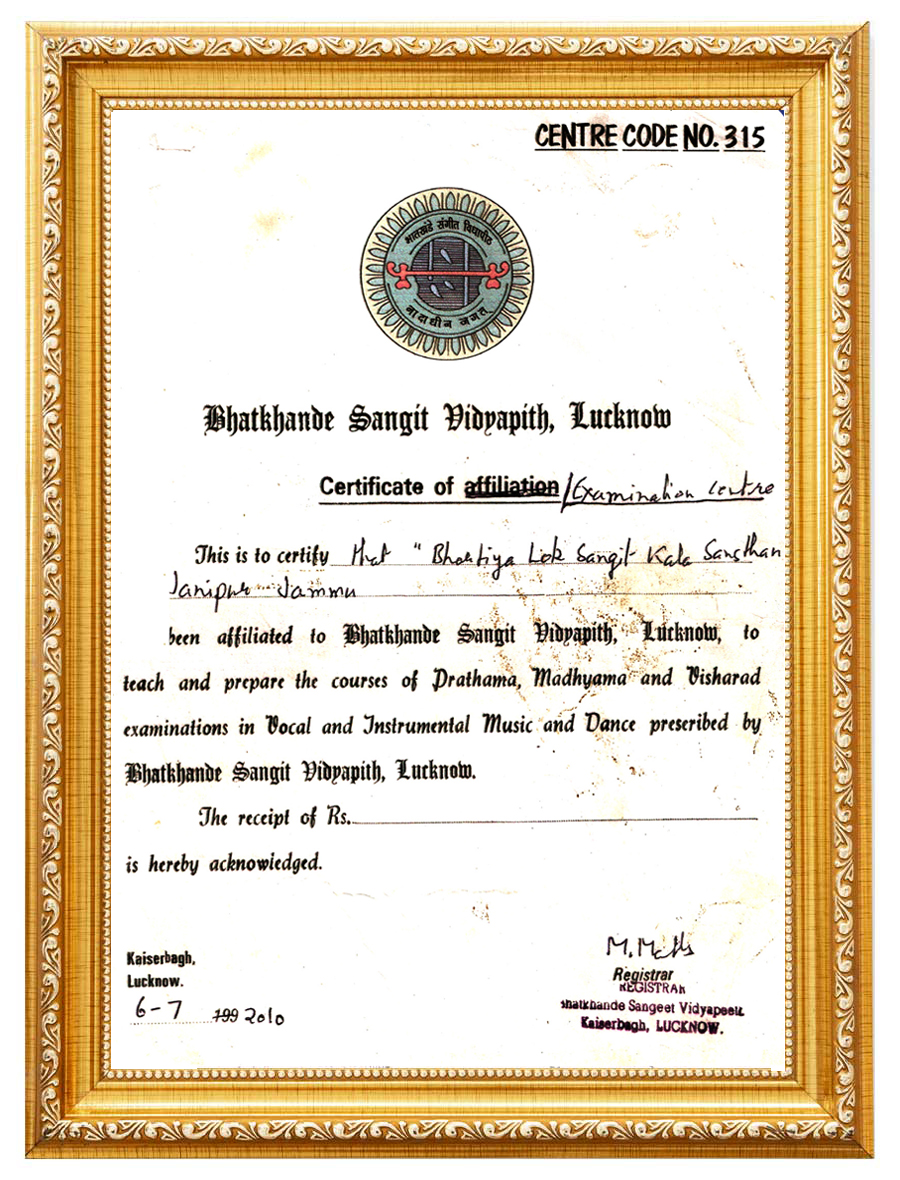 CENTRE CODE NO. 315
भातखंडे संगीत विद्यापीठ
नादाधीनं जगत्
Bhatkhande Sangit Vidyapith, Lucknow
Certificate of affiliation/Examination centre
This is to certify that "Bhartiya Lok Sangit Kala Sansthan
Janipur Jammu
been affiliated to Bhatkhande Sangit Vidyapith, Lucknow, to
teach and prepare the courses of Prathama, Madhyama and Visharad
examinations in Vocal and Instrumental Music and Dance prescribed by
Bhatkhande Sangit Vidyapith, Lucknow.
The receipt of Rs.
is hereby acknowledged.
Kaiserbagh,
Lucknow.
6-7 199 2010
Registrar
REGISTRAR
Bhatkhande Sangeet Vidyapeeth
Kaiserbagh, LUCKNOW.